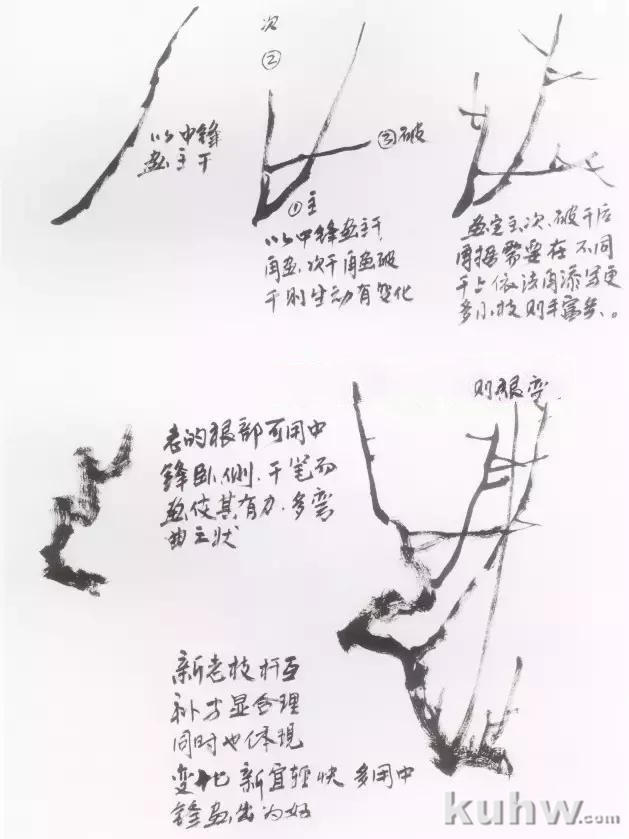 以中锋
画主干
次
②
③破
①主
以中锋画主干
再画、次干再画破
干则生动有变化
画定主、次、破干后
再据需要在不同
干上依法再添写更
多小枝则丰富矣、。
则根弯
老的根部可用中
锋卧、侧、干笔而
画使其有力、多弯
曲之状
新老枝杆互
补才显合理
同时也体现
变化 新宜轻快 多用中
锋画出为好
kuhw.com